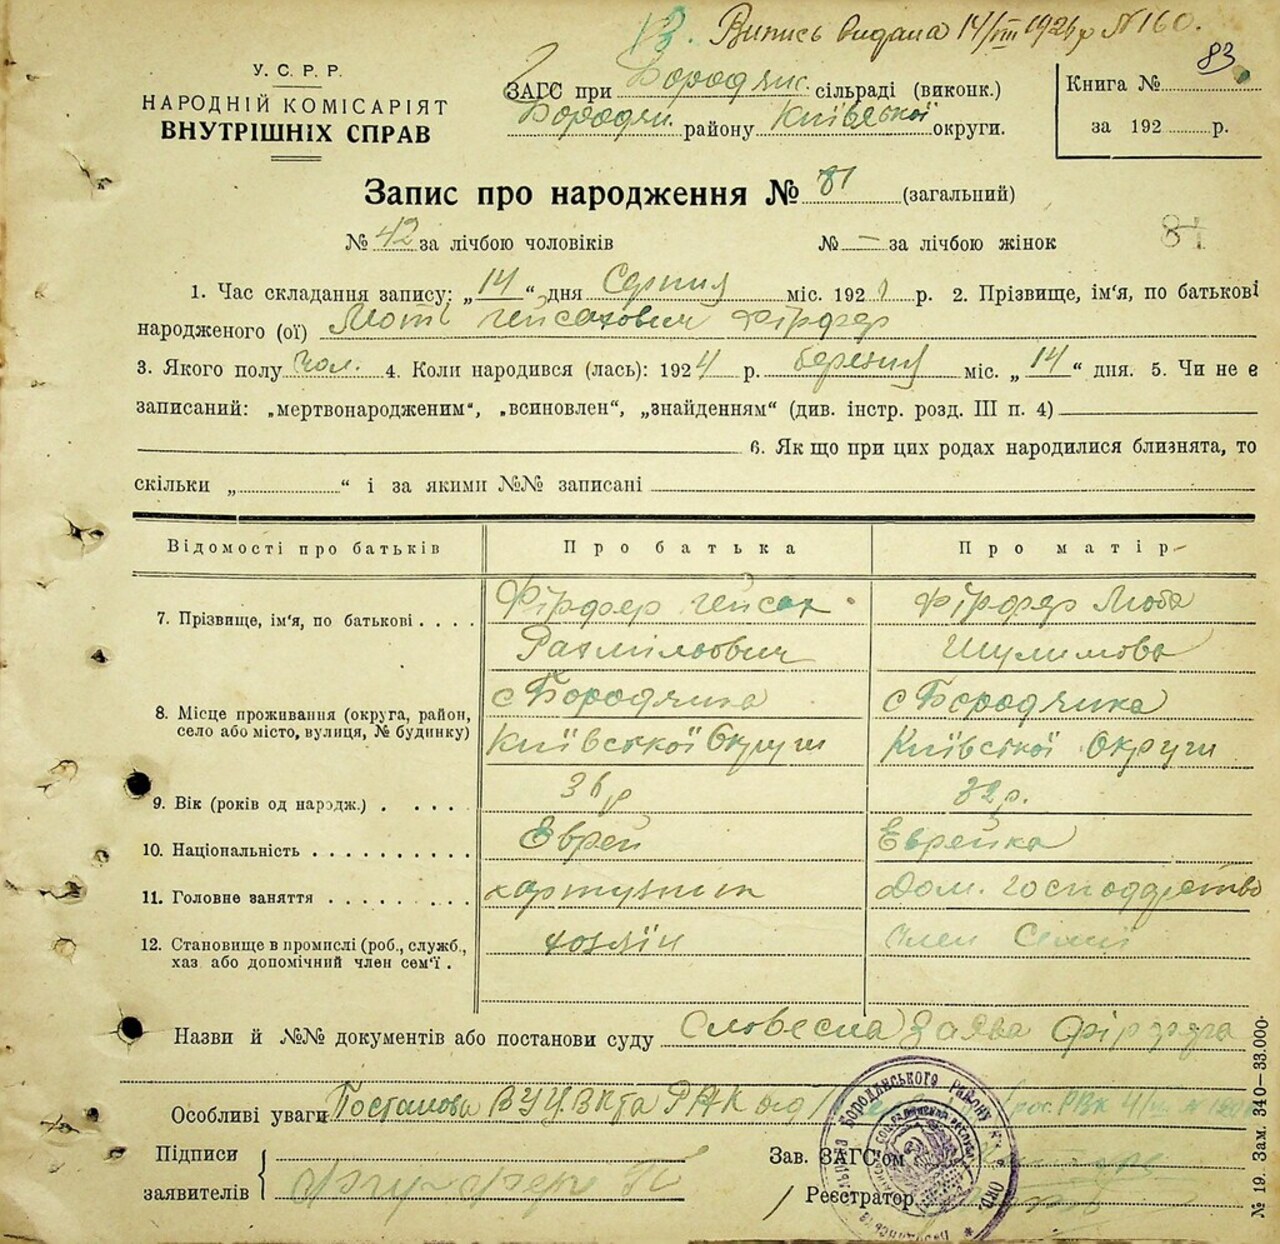 В. Випись видана 14/VIII 1926 р №160.
83
У. С. Р. Р.
НАРОДНІЙ КОМІСАРІЯТ
ВНУТРІШНІХ СПРАВ
ЗАГС при Бородянс. сільраді (виконк.)
Бородян. району Київської округи.
Книга №
за 192 р.
Запис про народження № 81 (загальний)
№ 42 за лічбою чоловіків № — за лічбою жінок 81
1. Час складання запису: „14“ дня Серпня міс. 192 р. 2. Прізвище, ім'я, по батькові
народженого (ої) Моті Гейсахович Фірфер
3. Якого полу чол. 4. Коли народився (лась): 1924 р. березня міс. „14“ дня. 5. Чи не є
записаний: „мертвонародженим“, „всиновлен“, „знайденням“ (див. інстр. розд. III п. 4)
6. Як що при цих родах народилися близнята, то
скільки „ “ і за якими №№ записані
Відомості про батьків Про батька Про матір
7. Прізвище, ім'я, по батькові . . . .
Фірфер Гейсах Фірфер Люба
Рахмільович Шулимова
8. Місце проживання (округа, район,
село або місто, вулиця, № будинку)
с Бородянка с Бородянка
Київської Округи Київської Округи
9. Вік (років од народж.) . . . . 36 р 32 р.
10. Національність . . . . . . . . . . Еврей Еврейка
11. Головне заняття . . . . . . . . . картузник Дом. господарство
12. Становище в промислі (роб., служб.,
хаз або допомічний член сем'ї .
хозяін Член Семії
Назви й №№ документів або постанови суду Словесна Заява Фірфера
Особливі уваги Постанова ВУЦВК та РНК від
Підписи
заявителів
Зав. ЗАГС'ом
Реєстратор
Бородянського району
№ 19. Зам. 340—33.000·